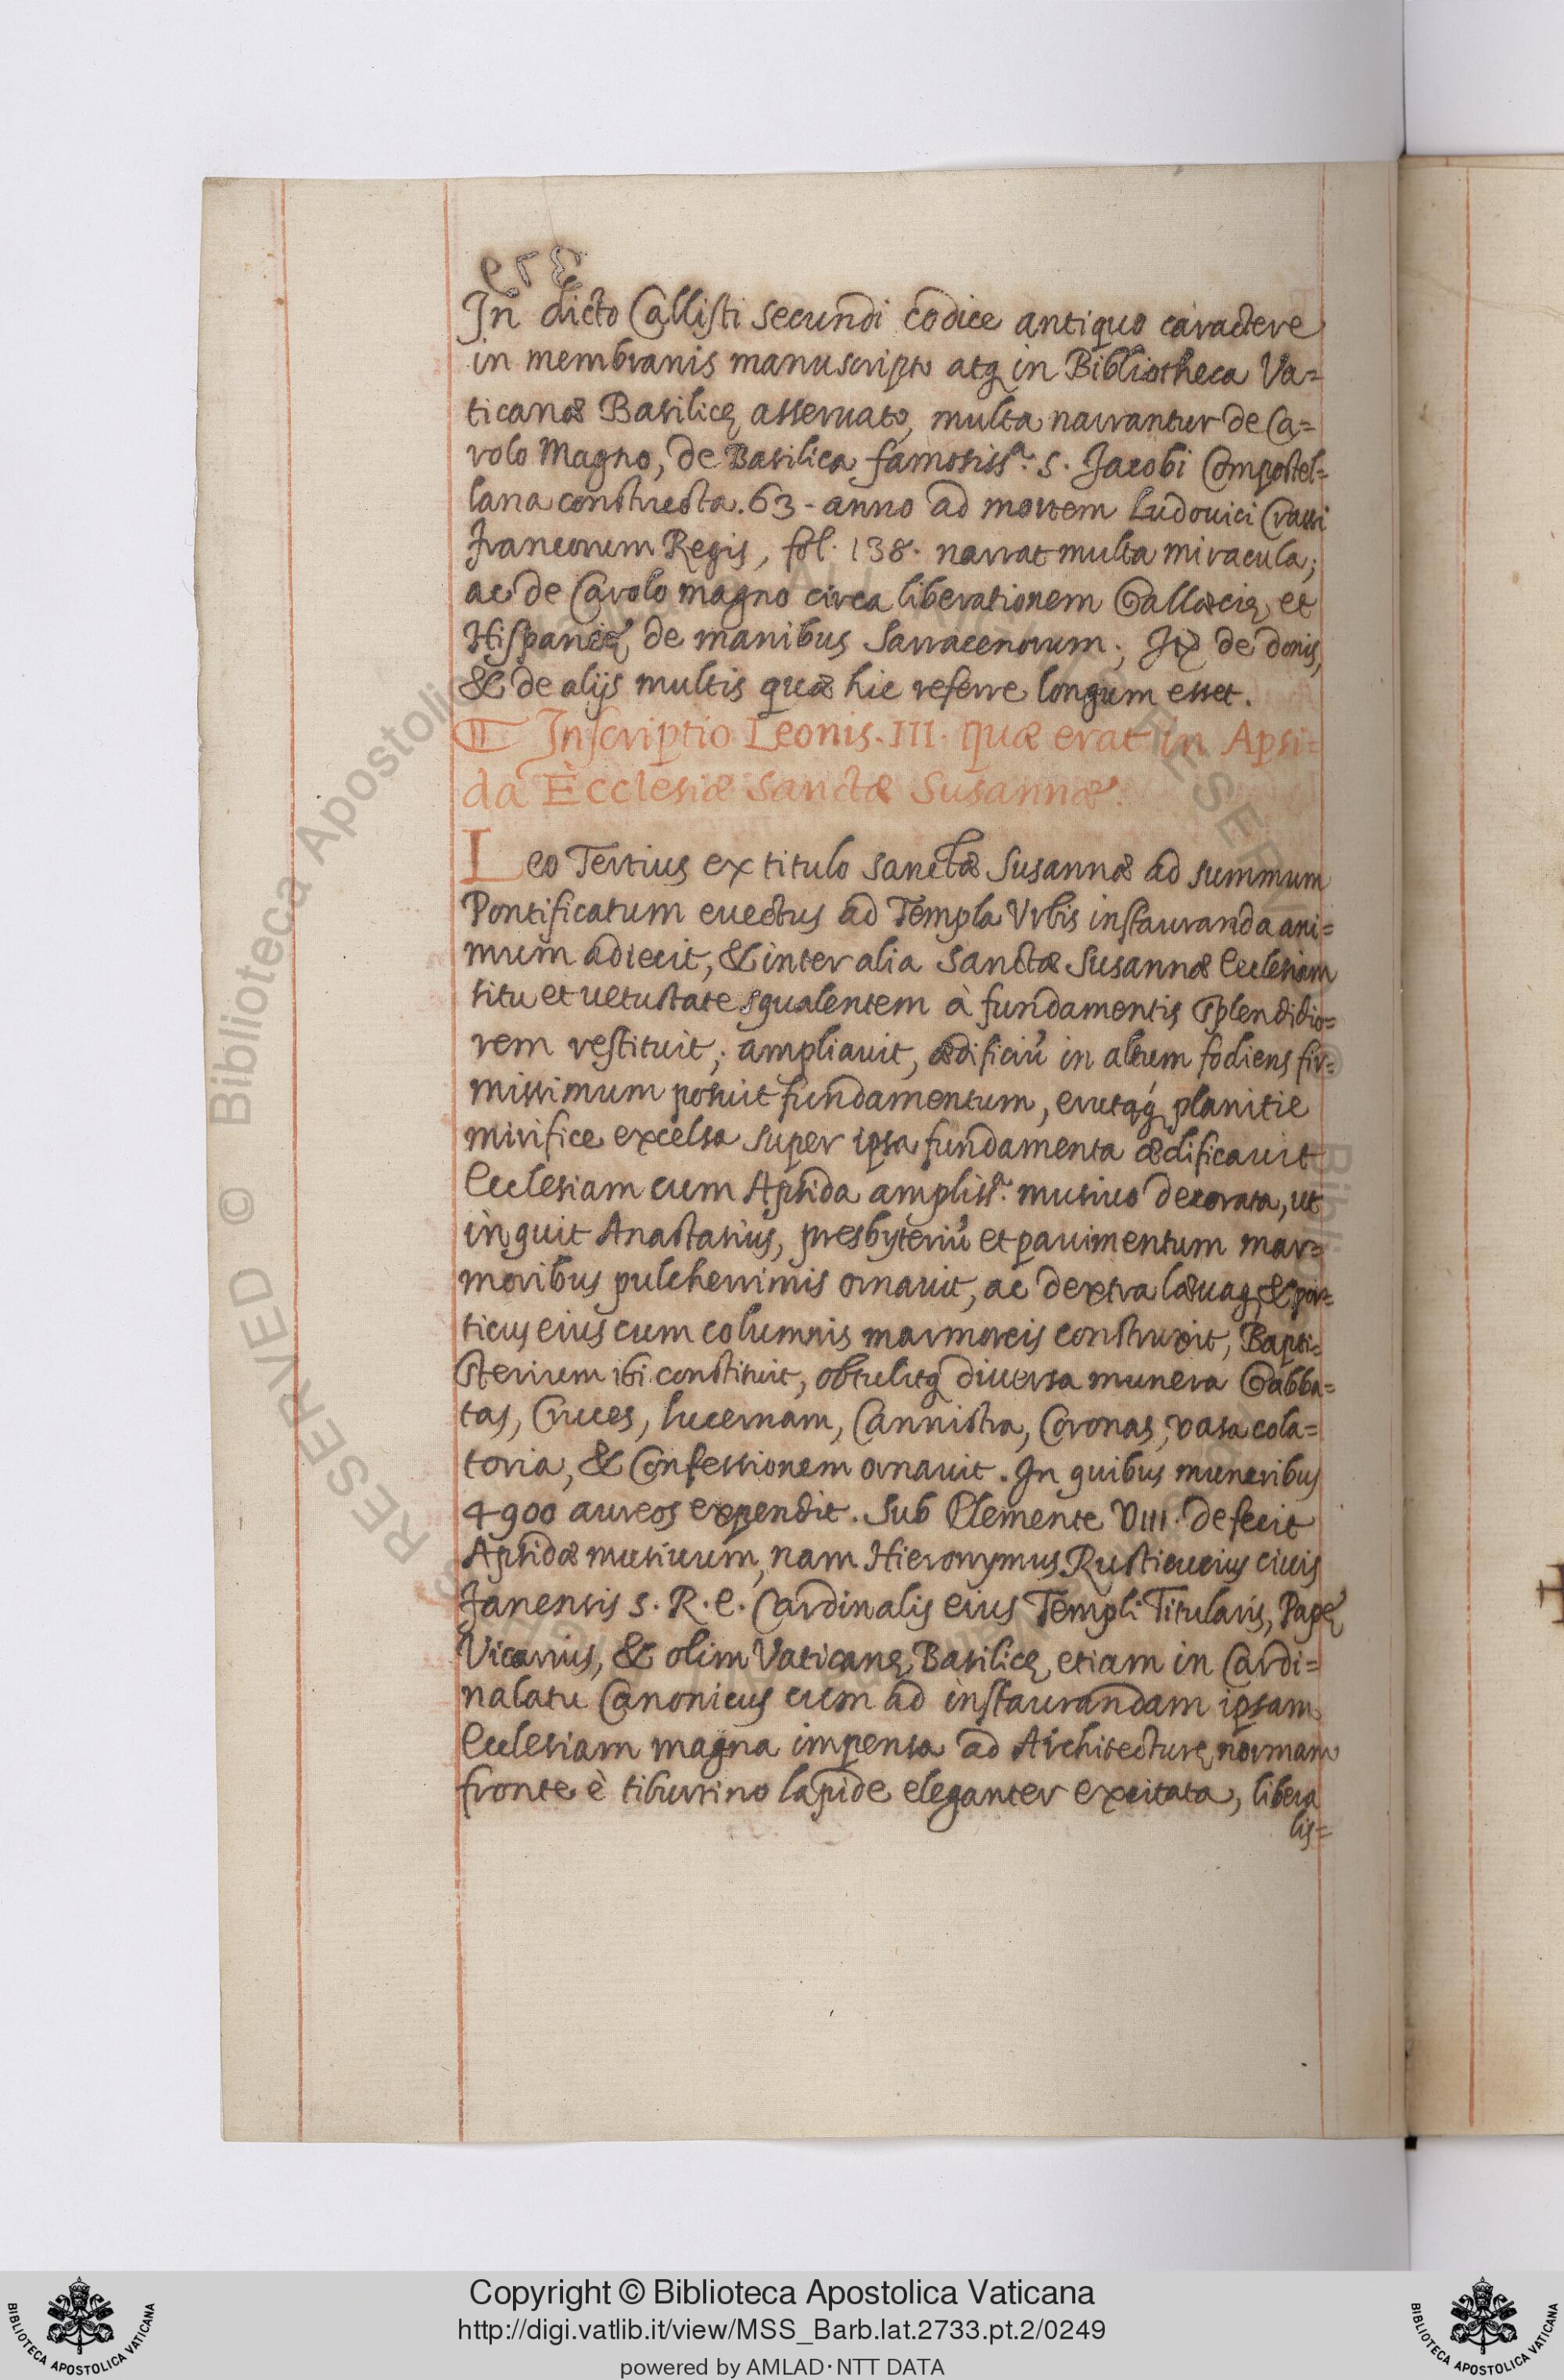 In dicto Callisti secundi codice antiquo caractere
in membranis manuscripto atq in Bibliotheca Va=
ticanæ Basilicę asseruato, multa narrantur de Ca=
rolo Magno, de Basilica famosissᵃ. S. Jacobi Compostel=
lana constructa. 63 - anno ad mortem Ludouici Crassi
francorum Regis, fol. 138. narrat multa miracula;
ac de Carolo magno circa liberationem Gallæcię, et
Hispanię, de manibus Sarracenorum; Itẽ de donis,
& de alijs multis quæ hic referre longum esset.
Inscriptio Leonis. III. quæ erat in Apsi=
da Ecclesiæ Sanctæ Susannæ.
Leo Tertius ex titulo sanctæ Susannæ ad summum
Pontificatum euectus ad Templa Vrbis instauranda ani=
mum adiecit, & inter alia Sanctæ Susannæ Ecclesiam
situ et uetustate squalentem à fundamentis splendidio=
rem restituit; ampliauit, ædificiũ in altum fodiens fir=
missimum posuit fundamentum, erutaq planitie
mirifice excelsa super ipsa fundamenta ædificauit
Ecclesiam cum Apsida amplissᵃ. musiuo decorata, ut
inquit Anastasius, presbyteriũ et pauimentum mar=
moribus pulcherrimis ornauit, ac dextra læuaq, & por=
ticus eius cum columnis marmoreis construxit, Bapti=
sterium ibi constituit, obtulitq diuersa munera Gabba=
tas, Cruces, lucernam, Cannistra, Coronas, vasa cola=
toria, & Confessionem ornauit. In quibus muneribus
4900 aureos expendit. Sub Clemente VIII. defecit
Apsidæ musiuum, nam Hieronymus Rusticucius ciuis
fanensis S. R. E. Cardinalis eius Templi Titularis, Papę
Vicarius, & olim Vaticanę Basilicę etiam in Cardi=
nalatu Canonicus cum ad instaurandam ipsam
Ecclesiam magna impensa ad Architecturę normam
fronte è tiburtino lapide eleganter excitata, libera
lis=
© Biblioteca Apostolica Vaticana
ALL RIGHTS RESERVED
Copyright © Biblioteca Apostolica Vaticana
http://digi.vatlib.it/view/MSS_Barb.lat.2733.pt.2/0249
powered by AMLAD·NTT DATA
BIBLIOTECA APOSTOLICA VATICANA
BIBLIOTECA APOSTOLICA VATICANA